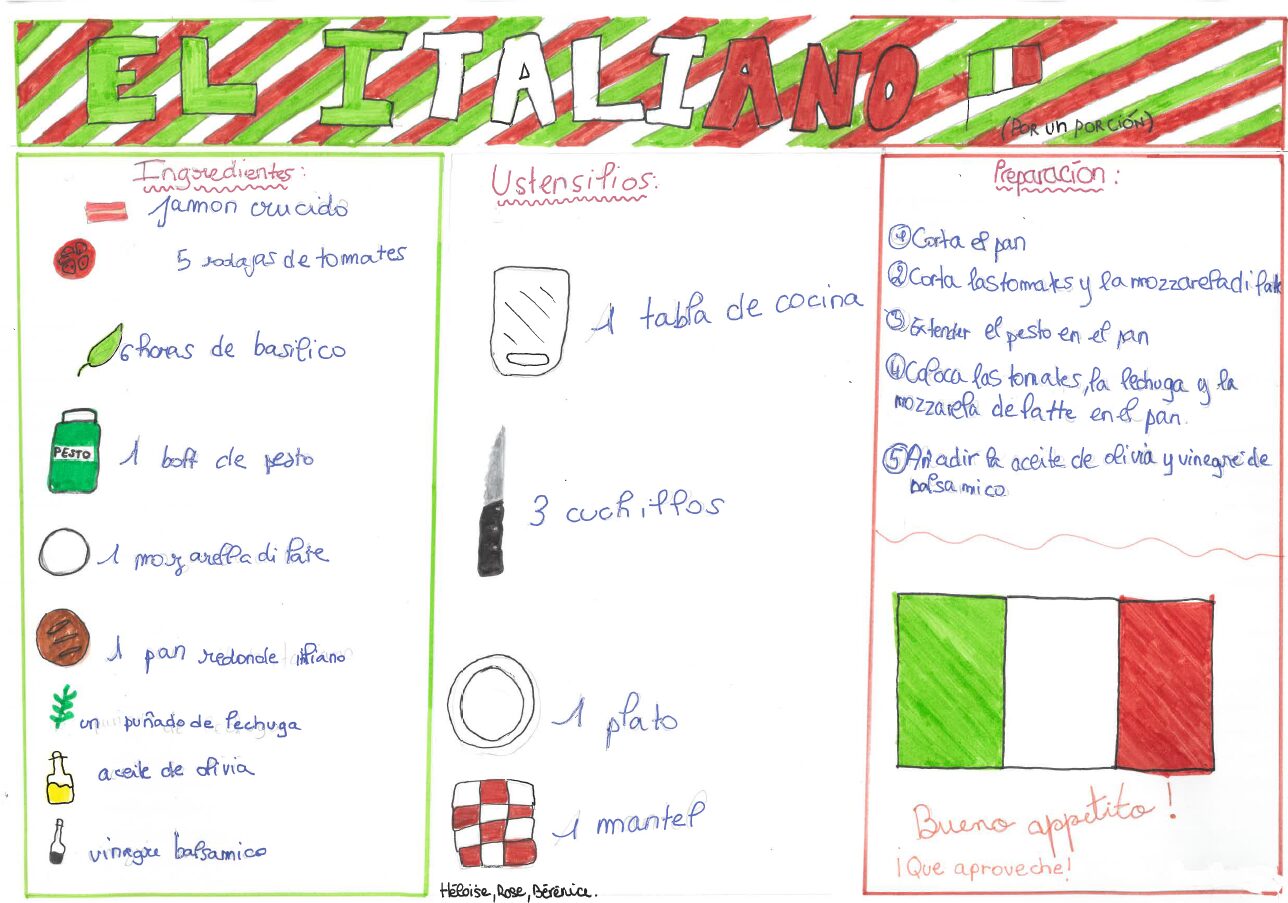 EL ITALIANO
(POR UN PORCIÓN)
Ingredientes:
jamon crucido
5 rodajas de tomates
6 horas de basilico
PESTO
1 bott de pesto
1 mozarella di late
1 pan redonde itliano
un puñado de lechuga
aceite de olivia
vinagre balsamico
Ustensilios:
1 tabla de cocina
3 cuchillos
1 plato
1 mantel
Héloïse, Rose, Bérénice.
Preparación:
① Corta el pan
② Corta las tomates y la mozzarella di latte
③ Extender el pesto en el pan
④ Coloca las tomates, la lechuga y la
mozzarella de latte en el pan.
⑤ Añadir la aceite de olivia y vinegre de
balsamico
Bueno appetito!
¡Que aproveche!